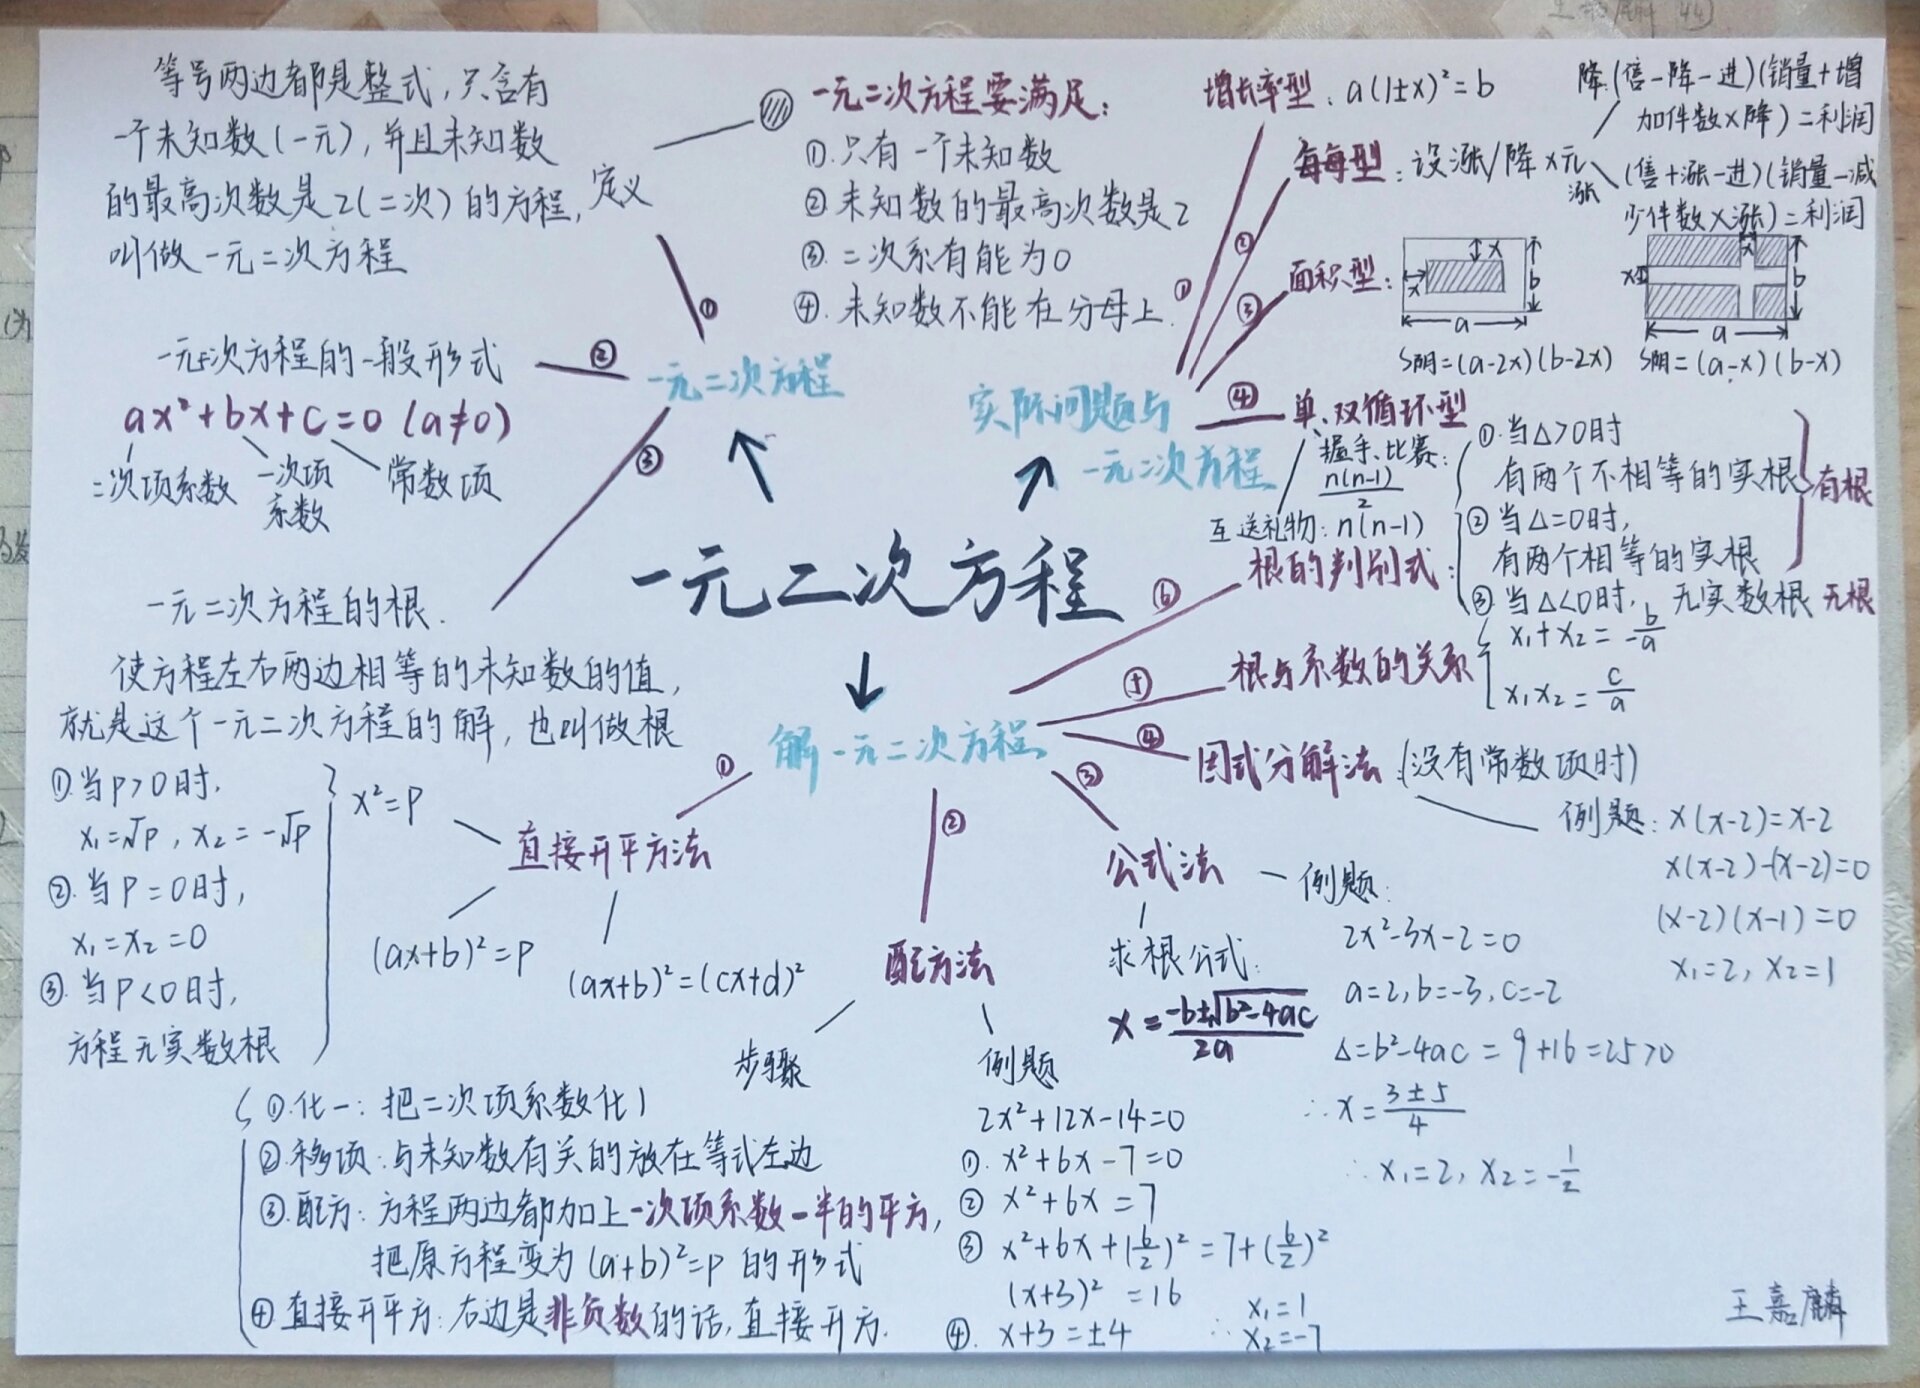 等号两边都是整式,只含有
一个未知数(一元),并且未知数
的最高次数是2(二次)的方程,
叫做一元二次方程
定义
一元二次方程要满足:
①.只有一个未知数
②未知数的最高次数是2
③.二次系有能为0
④.未知数不能在分母上.
①
②
一元二次方程的一般形式
ax²+bx+c=0 (a≠0)
二次项系数
一次项
系数
常数项
③
一元二次方程的根.
使方程左右两边相等的未知数的值,
就是这个一元二次方程的解,也叫做根
一元二次方程
实际问题与
一元二次方程
①
增长率型:a(1±x)²=b
②
每每型:设涨/降x元
降:(售-降-进)(销量+增
加件数×降)=利润
涨
(售+涨-进)(销量-减
少件数×涨)=利润
③
面积型:
x
x
b
a
S阴=(a-2x)(b-2x)
x
x
b
a
S阴=(a-x)(b-x)
④
单、双循环型
握手、比赛:
n(n-1)/2
互送礼物:n(n-1)
一元二次方程
解一元二次方程
⑥
根的判别式:
①.当△>0时
有两个不相等的实根
②当△=0时,
有两个相等的实根
有根
③当△<0时, 无实数根 无根
根与系数的关系
x₁+x₂=-b/a
x₁x₂=c/a
④
因式分解法(没有常数项时)
例题:x(x-2)=x-2
x(x-2)-(x-2)=0
(x-2)(x-1)=0
x₁=2, x₂=1
③
公式法
求根公式:
x=-b±√b²-4ac/2a
例题:
2x²-3x-2=0
a=2,b=-3,c=-2
△=b²-4ac=9+16=25>0
∴x=3±5/4
∴x₁=2, x₂=-1/2
①
直接开平方法
x²=p
①.当p>0时.
x₁=√p, x₂=-√p
②.当p=0时,
x₁=x₂=0
③.当p<0时,
方程无实数根
(ax+b)²=p
(ax+b)²=(cx+d)²
②
配方法
步骤
①.化一:把二次项系数化1
②.移项:与未知数有关的放在等式左边
③.配方:方程两边都加上一次项系数一半的平方,
把原方程变为(a+b)²=p的形式
④直接开平方:右边是非负数的话,直接开方.
例题
2x²+12x-14=0
①.x²+6x-7=0
②x²+6x=7
③x²+6x+(6/2)²=7+(6/2)²
(x+3)²=16
④.x+3=±4
∴x₁=1
x₂=-7
王嘉麟